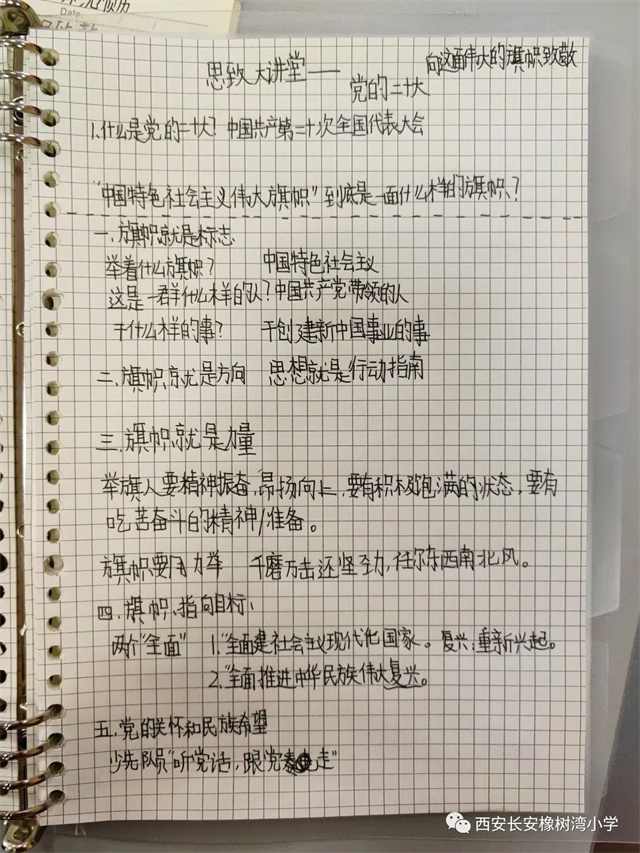 Date
思致大讲堂——
向这面伟大的旗帜致敬
党的二十大
1.什么是党的二十大? 中国共产第二十次全国代表大会
“中国特色社会主义伟大旗帜”到底是一面什么样的旗帜?
一.旗帜就是标志
举着什么旗帜? 中国特色社会主义
这是一群什么样的人?中国共产党带领的人
干什么样的事? 干创建新中国事业的事
二.旗帜就是方向 思想就是行动指南
三.旗帜就是力量
举旗人要精神振奋,昂扬向上,要有积极饱满的状态,要有
吃苦奋斗的精神/准备。
旗帜要用力举 千磨万击还坚劲,任尔东西南北风。
四.旗帜指向目标:
两个“全面” 1.“全面建社会主义现代化国家。复兴:重新兴起。
2.“全面推进中华民族伟大复兴。
五.党的关怀和民族希望
少先队员“听党话,跟党走”
西安长安橡树湾小学